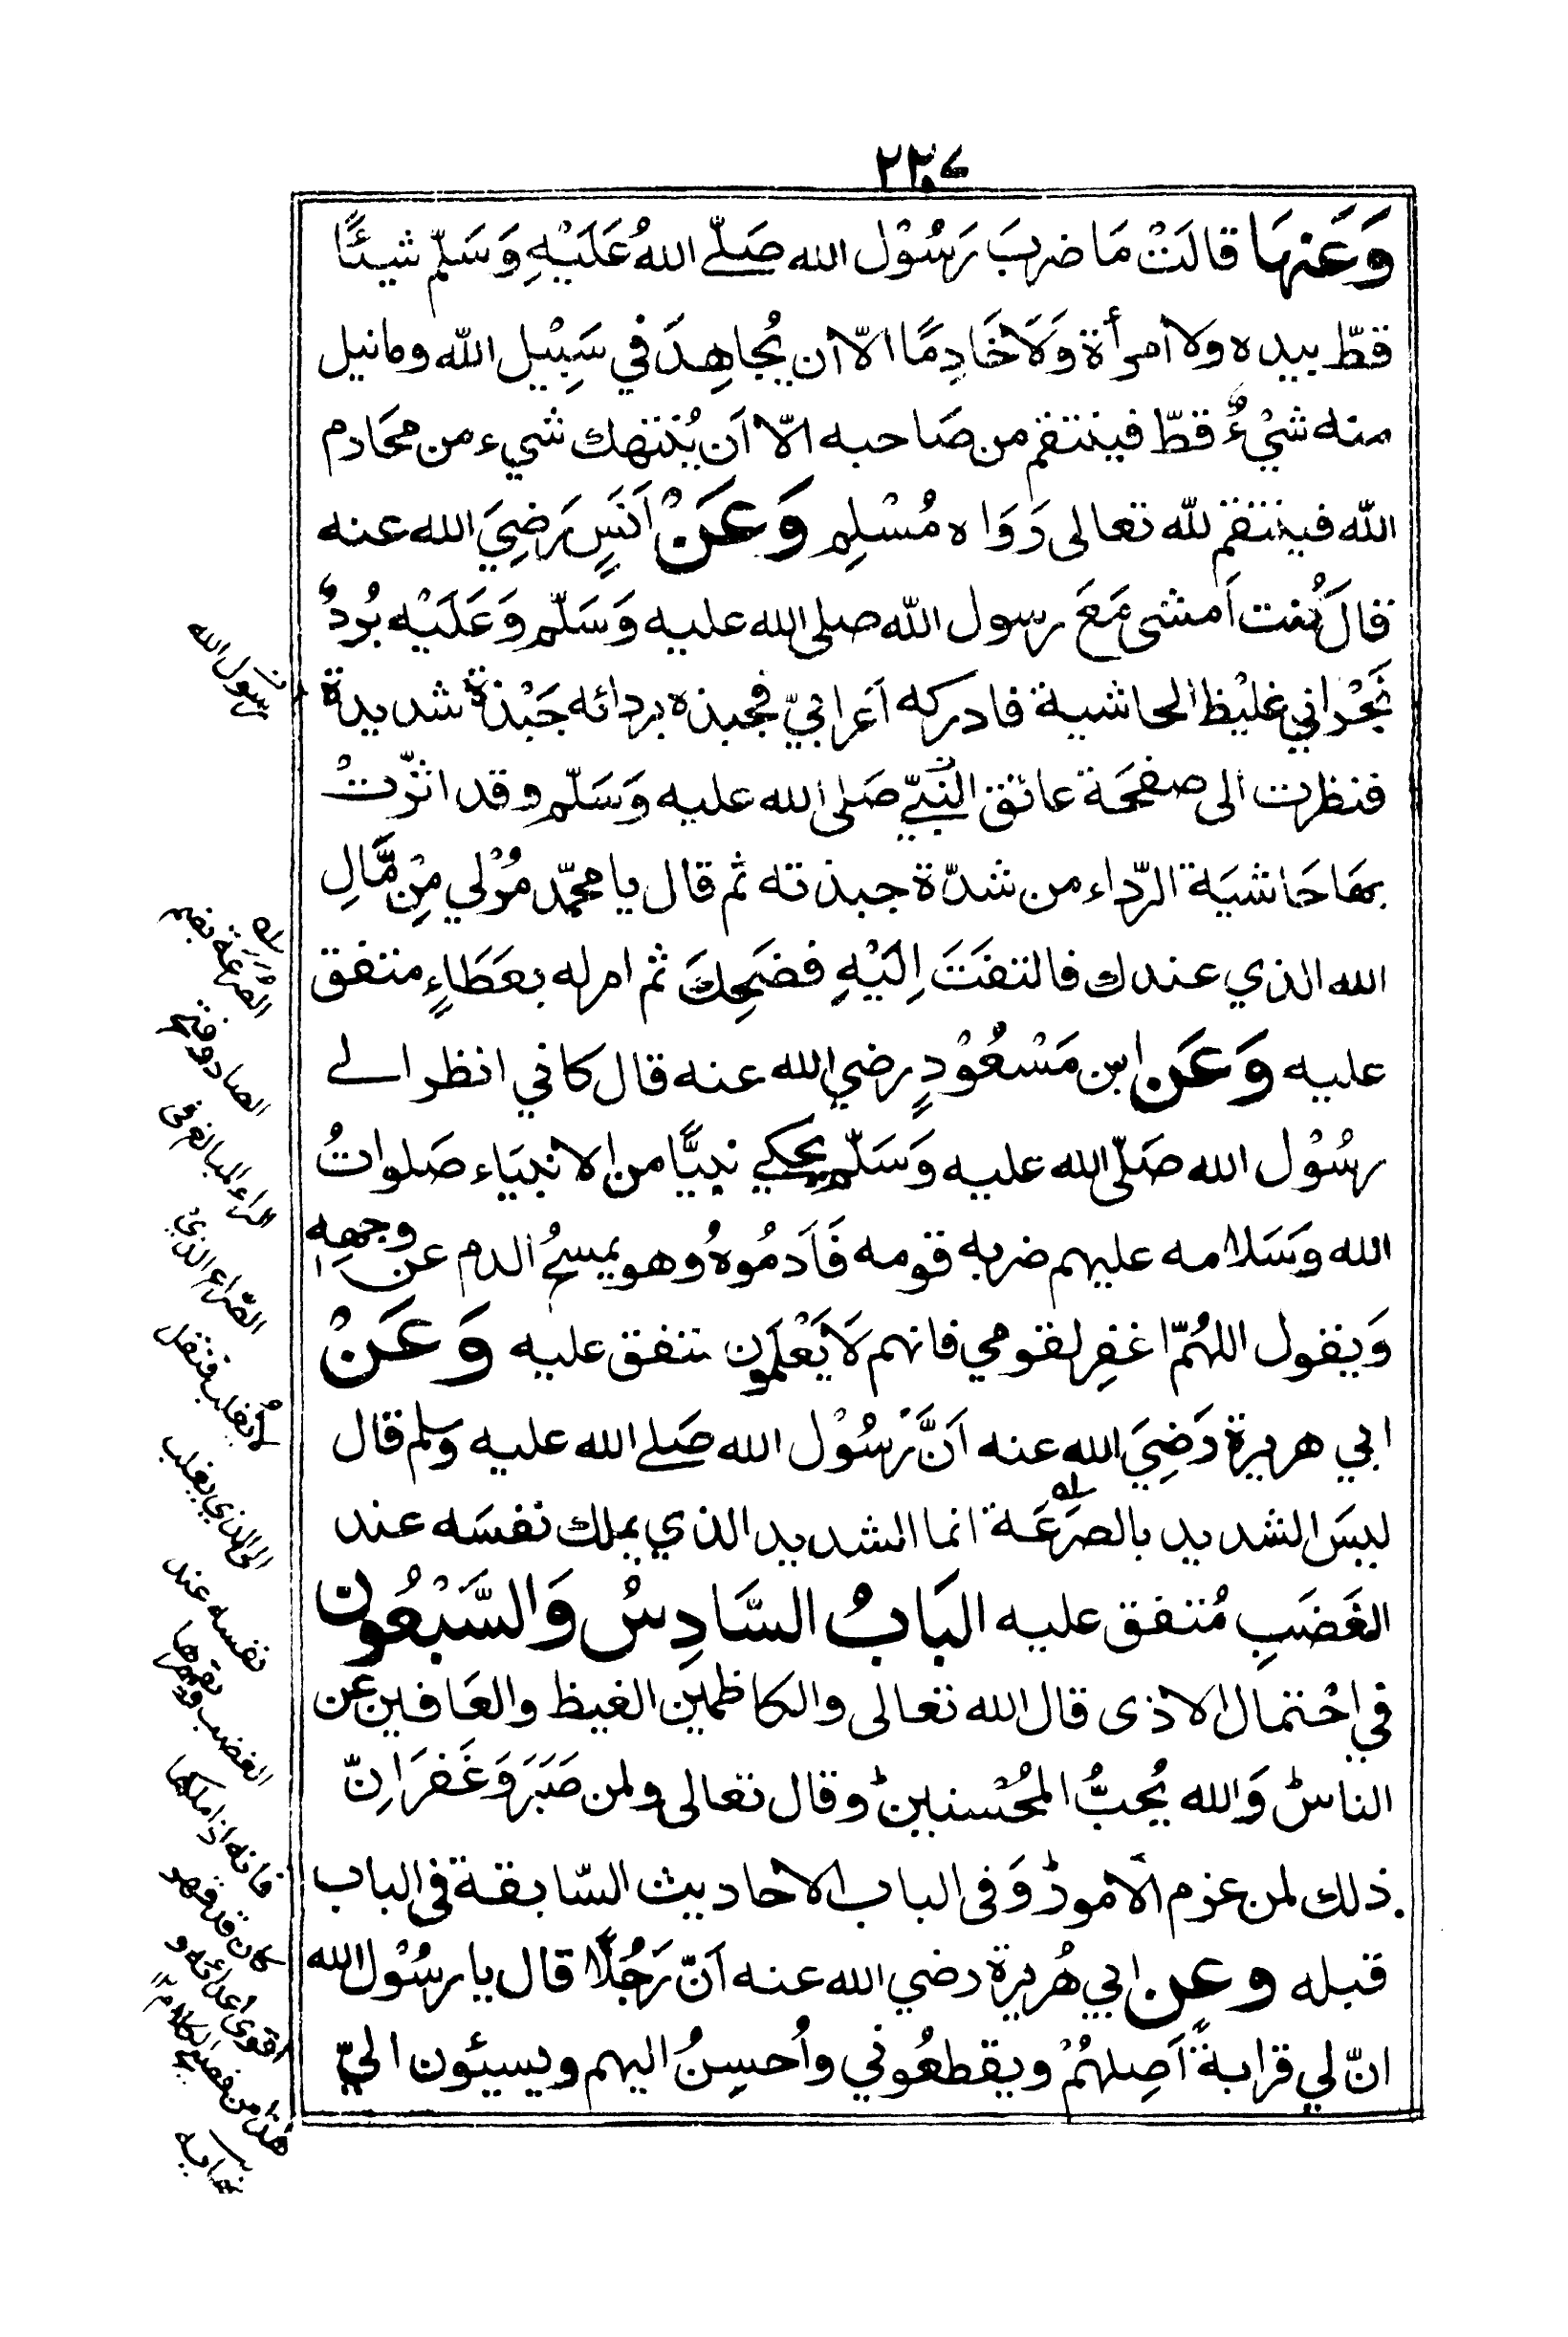 ٢٢٧
وَعَنهَا قالَتْ مَا ضربَ رَسُوْل الله صَلّے اللهُ عَلَيْهِ وَسَلّم شيئًا
قطّ بيده ولا أمرأة وَلَا خَادِمًا الّا أن يُجاهِدَ في سَبِيْل اللّٰه وما نيل
منه شيْءٌ قطّ فينتقم من صَاحبه الّا اَن يُنتهك شيء من محَارم
اللّٰه فينتقم للّٰه تعالى رَوَاه مُسْلِم وَعَنْ اَنَسٍ رَضِيَ الله عنه
قالَ كُنت اَمشى مَعَ رسول اللّٰه صلى الله عليه وَسَلّم وَعَلَيْه بُردٌ
نَجْرَاني غليْظ الحاشية فادركه اَعرابيّ فجبذه بردائه جَبْذةً شديدة
فنظرت الى صفحَة عاتق النَّبيّ صَلى الله عليه وَسَلّم وقد اثّرتْ
بهَا حَاشيَة الرّداء من شدّة جبذته ثم قال يا محمّد مُرْلي مِنْ مَّالِ
الله الذي عندك فالتفَتَ اِلَيْهِ فضَحِكَ ثم امرله بعَطَاءٍ متفق
عليه وَعَن ابن مَسْعُوْدٍ رضي الله عنه قال كاني انظر الے
رسُوْل الله صَلّى الله عليه وَسَلّم يحكي نبيًّا من الانبيَاء صَلواتُ
الله وَسَلامه عليهم ضربه قومه فَاَدمُوهُ وهو يمسحُ الدم عن وجهِهِ
وَيقول اللهُمّ اغفِر لقومي فانهم لَا يَعْلَمون متفق عليه وَعَنْ
ابي هريرة رَضِيَ الله عنه اَنَّ رَسُوْل الله صَلے الله عليه وسلم قال
ليسَ الشديد بالصرَعَة انما الشديد الذي يملك نفسَه عند
الغَضَبِ مُتفق عليه البَابُ السَّادِسُ وَالسَّبْعُون
في احْتمال الاذى قال الله تعالى والكاظمين الغيظ والعَافين عن
الناس وَالله يُحبُّ المُحْسنين وقال تعالى ولمن صَبَرَ وَغَفرَ اِنّ
ذلك لمن عزم الامور وَفى الباب الاحاديث السّابقة فى الباب
قبله وعن ابي هُريرة رضي الله عنه اَنّ رَجُلًا قال يا رسُوْل الله
انّ لي قرابةً اَصِلهُمْ ويقطعُوني واُحسِنُ اليهم ويسيئون اليّ
رسول الله
الصُّرَعَة بضم
الصاد وفتح
الراء المبالغ فى
الصّراع الذي
لا يُغلب فنقل
الى الذي يغلب
نفسه عند
الغضب ويقهرها
فانه اذا ملكها
كان قد قهر
اقوى أعدائه و
هذا من فصيح الكلام
نهايه